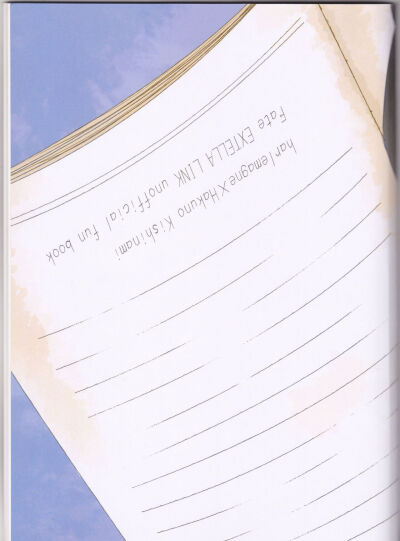 Fate EXTELLA LINK unofficial fun book
harlemagne X Hakuno Kishinami